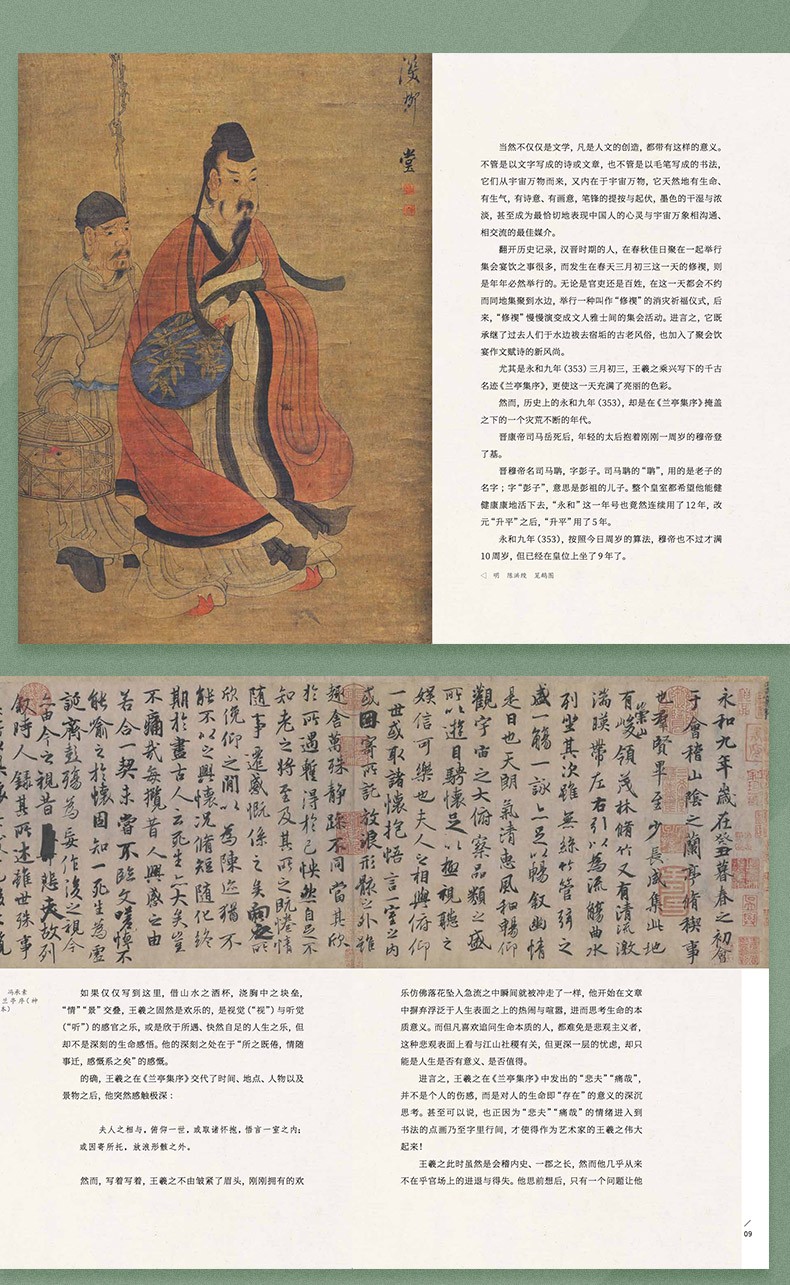 溪山
堂
当然不仅仅是文学，凡是人文的创造，都带有这样的意义。
不管是以文字写成的诗或文章，也不管是以毛笔写成的书法，
它们从宇宙万物而来，又内在于宇宙万物，它天然地有生命、
有生气，有诗意、有画意，笔锋的提按与起伏，墨色的干湿与浓
淡，甚至成为最恰切地表现中国人的心灵与宇宙万象相沟通、
相交流的最佳媒介。
翻开历史记录，汉晋时期的人，在春秋佳日聚在一起举行
集会宴饮之事很多，而发生在春天三月初三这一天的修禊，则
是年年必然举行的。无论是官吏还是百姓，在这一天都会不约
而同地集聚到水边，举行一种叫作“修禊”的消灾祈福仪式，后
来，“修禊”慢慢演变成文人雅士间的集会活动。进言之，它既
承继了过去人们于水边祓去宿垢的古老风俗，也加入了聚会饮
宴作文赋诗的新风尚。
尤其是永和九年（353）三月初三，王羲之乘兴写下的千古
名迹《兰亭集序》，更使这一天充满了亮丽的色彩。
然而，历史上的永和九年（353），却是在《兰亭集序》掩盖
之下的一个灾荒不断的年代。
晋康帝司马岳死后，年轻的太后抱着刚刚一周岁的穆帝登
了基。
晋穆帝名司马聃，字彭子。司马聃的“聃”，用的是老子的
名字；字“彭子”，意思是彭祖的儿子。整个皇室都希望他能健
健康康地活下去，“永和”这一年号也竟然连续用了12年，改
元“升平”之后，“升平”用了5年。
永和九年（353），按照今日周岁的算法，穆帝也不过才满
10周岁，但已经在皇位上坐了9年了。
◁ 明 陈洪绶 笼鹅图
永和九年歲在癸丑暮春之初會
于會稽山陰之蘭亭脩稧事
也羣賢畢至少長咸集此地
有崇山峻領茂林脩竹又有清流激
湍暎帶左右引以為流觴曲水
列坐其次雖無絲竹管弦之
盛一觴一詠亦足以暢叙幽情
是日也天朗氣清惠風和暢仰
觀宇宙之大俯察品類之盛
所以遊目騁懷足以極視聽之
娛信可樂也夫人之相與俯仰
一世或取諸懷抱悟言一室之內
或因寄所託放浪形骸之外雖
趣舍萬殊靜躁不同當其欣
於所遇蹔得於己怏然自足不
知老之將至及其所之既惓情
隨事遷感慨係之矣向之所
欣俛仰之閒以為陳迹猶不
能不以之興懷況脩短隨化終
期於盡古人云死生亦大矣豈
不痛哉每攬昔人興感之由
若合一契未嘗不臨文嗟悼不
能喻之於懷固知一死生為虛
誕齊彭殤為妄作後之視今
亦由今之視昔悲夫故列
叙時人錄其所述雖世殊事
冯承素
兰亭序（神
本）
如果仅仅写到这里，借山水之酒杯，浇胸中之块垒，
“情”“景”交叠，王羲之固然是欢乐的，是视觉（“视”）与听觉
（“听”）的感官之乐，或是欣于所遇、快然自足的人生之乐，但
却不是深刻的生命感悟。他的深刻之处在于“所之既倦，情随
事迁，感慨系之矣”的感慨。
的确，王羲之在《兰亭集序》交代了时间、地点、人物以及
景物之后，他突然感触极深：
夫人之相与，俯仰一世，或取诸怀抱，悟言一室之内；
或因寄所托，放浪形骸之外。
然而，写着写着，王羲之不由皱紧了眉头，刚刚拥有的欢
乐仿佛落花坠入急流之中瞬间就被冲走了一样，他开始在文章
中摒弃浮泛于人生表面之上的热闹与喧嚣，进而思考生命的本
质意义。而但凡喜欢追问生命本质的人，都难免是悲观主义者，
这种悲观表面上看与江山社稷有关，但更深一层的忧虑，却只
能是人生是否有意义、是否值得。
进言之，王羲之在《兰亭集序》中发出的“悲夫”“痛哉”，
并不是个人的伤感，而是对人的生命即“存在”的意义的深沉
思考。甚至可以说，也正因为“悲夫”“痛哉”的情绪进入到
书法的点画乃至字里行间，才使得作为艺术家的王羲之伟大
起来！
王羲之此时虽然是会稽内史、一郡之长，然而他几乎从来
不在乎官场上的进退与得失。他思前想后，只有一个问题让他
09